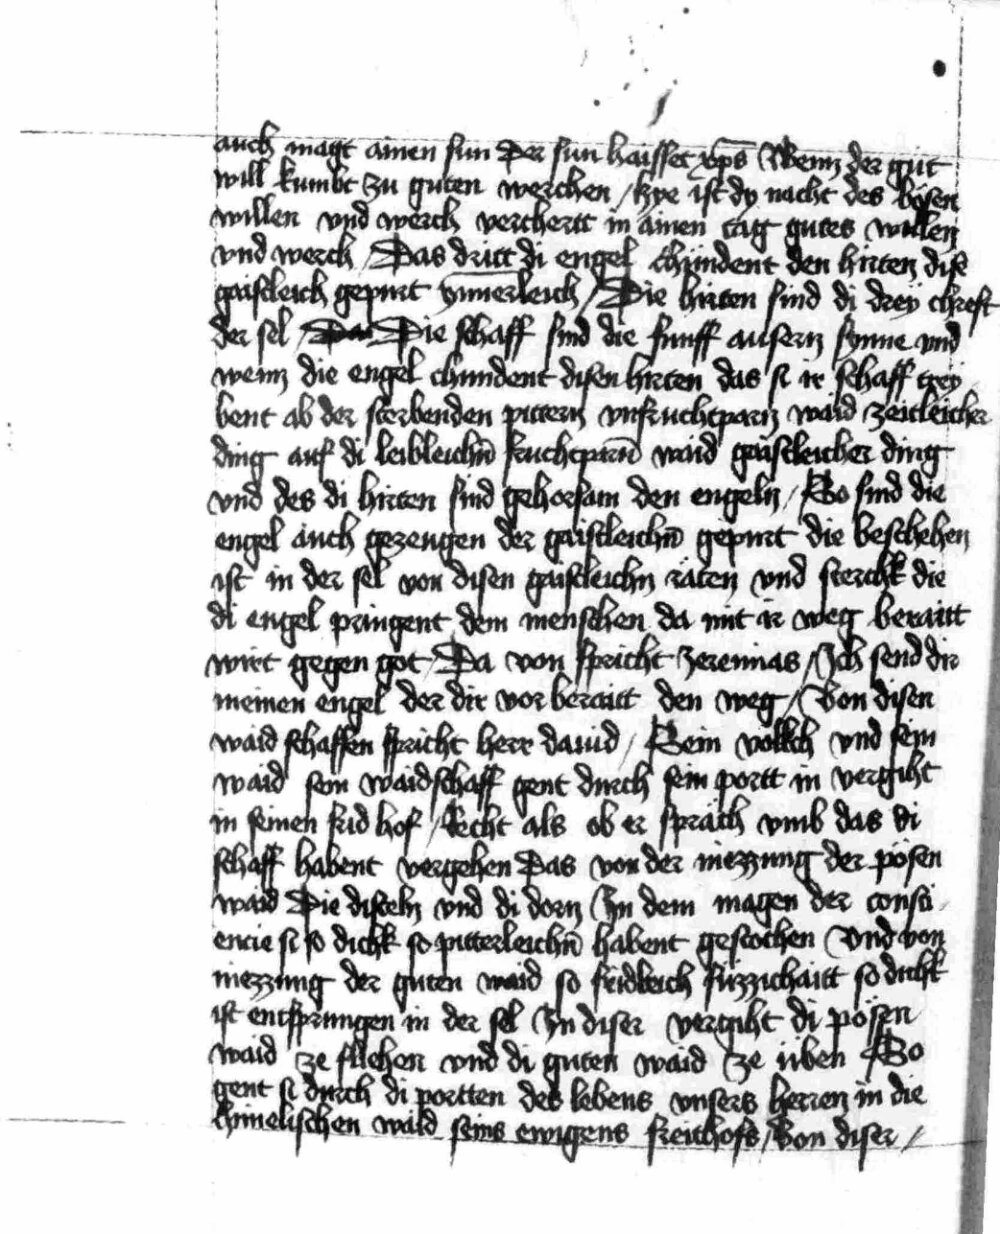 auch magt ainen sun Der sun haisset xps Wenn der gut
will kumbt zu guten werchen / hye ist dy nacht des bösen
willen vnd werch verchertt in ainen tag gutes willen
vnd werch / Das dritt di engel chündent den hirten dise
gaistleich gepurt ynnerleich / Die hirten sind di drey chreft
der sel / Die schaff sind die funff ausern synne vnd
wenn die engel chundent disen hirten das si ir schaff trey
bent ab der sterbenden pittern vnfruchtparn waid zeitleicher
ding auf di leibleichn fruchtparn waid gaistleicher ding
vnd des di hirten sind gehorsam den engeln / So sind die
engel auch gezeugen der gaistleichn gepurt die beschehen
ist in der sel von disen gaistleichn räten vnd sterchk die
di engel pringent dem menschen da mit ir weg beraitt
wirt gegen got / Da von spricht Jeremias / Ich send dir
meinen engel der dir vor beraitt den weg / Von disen
waid schaffen spricht herr dauid / Sein vollch vnd sein
waid sein waidschaff gent durch sein portt in vergiht
in seinen frid hof / Recht als ob er spräch vmb das di
schaff habent vergehen Das von der niezzung der pösen
waid Die disteln vnd di dorn In dem magen der consci
encie si so dichk so pitterleichn habent gestochen Vnd von
niezzung der guten waid so fridleich süzzichaitt so dichk
ist entsprungen in der sel In diser vergiht di pösen
waid ze fliehen vnd di guten waid ze üben So
gent si durch di portten des lebens vnsers herren in die
himelischen waid seins ewigens freithofs / Von diser /